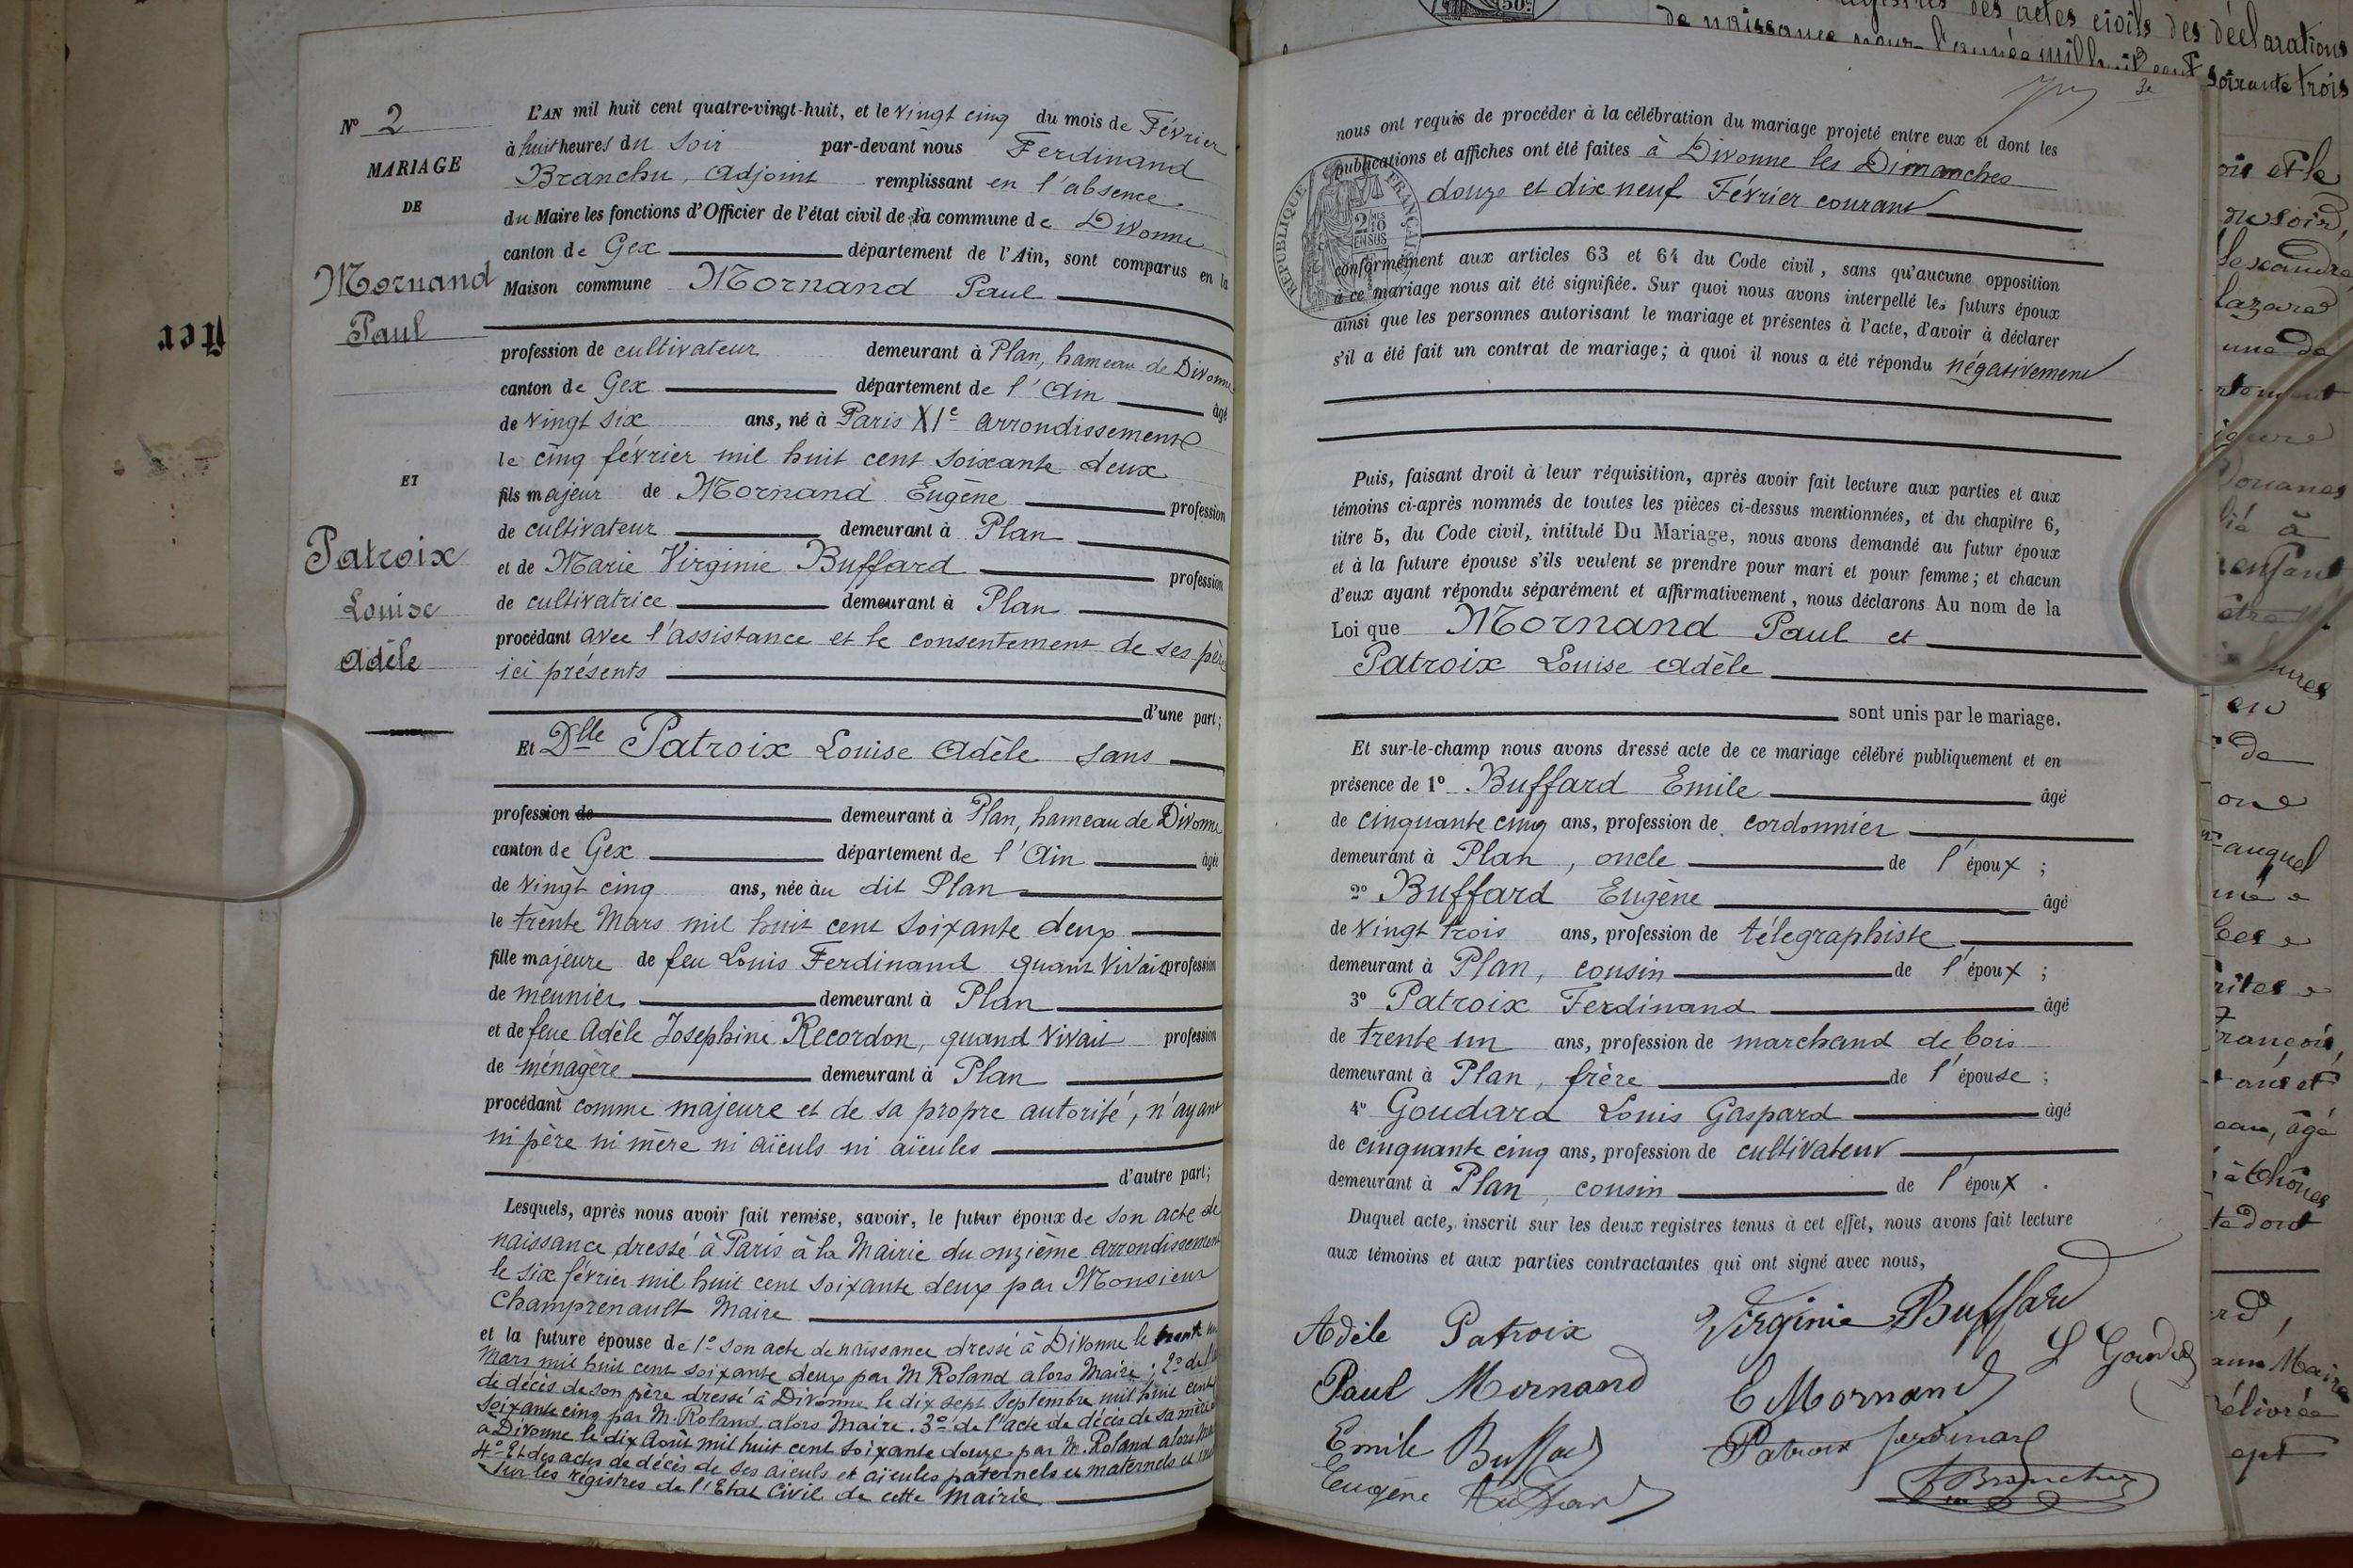 N° 2
MARIAGE
DE
Mornand
Paul
ET
Patroix
Louise
Adèle
L'AN mil huit cent quatre-vingt-huit, et le vingt cinq du mois de Février
à huit heures du soir par-devant nous Ferdinand
Branchu, Adjoint remplissant en l'absence
du Maire les fonctions d'Officier de l'état civil de la commune de Divonne
canton de Gex département de l'Ain, sont comparus en la
Maison commune Mornand Paul
profession de cultivateur demeurant à Plan, hameau de Divonne
canton de Gex département de l'Ain âgé
de vingt six ans, né à Paris XIe arrondissement
le cinq février mil huit cent soixante deux
fils majeur de Mornand Eugène profession
de cultivateur demeurant à Plan
et de Marie Virginie Buffard profession
de cultivatrice demeurant à Plan
procédant avec l'assistance et le consentement de ses père
ici présents
d'une part;
Et Dlle Patroix Louise Adèle sans
profession de demeurant à Plan, hameau de Divonne
canton de Gex département de l'Ain âgée
de vingt cinq ans, née au dit Plan
le trente Mars mil huit cent soixante deux
fille majeure de feu Louis Ferdinand quand vivait profession
de meunier demeurant à Plan
et de feue Adèle Josephine Recordon, quand vivait profession
de ménagère demeurant à Plan
procédant comme majeure et de sa propre autorité, n'ayant
ni père ni mère ni aïeuls ni aïeules
d'autre part;
Lesquels, après nous avoir fait remise, savoir, le futur époux de son acte de
naissance dressé à Paris à la Mairie du onzième arrondissement
le six février mil huit cent soixante deux par Monsieur
Champrenault Maire
et la future épouse de 1° son acte de naissance dressé à Divonne le trente un
Mars mil huit cent soixante deux par M Roland alors Maire; 2° de l'
de décès de son père dressé à Divonne le dix sept Septembre mil huit cent
soixante cinq par M. Roland alors Maire. 3° de l'acte de décès de sa mère
à Divonne le dix Août mil huit cent soixante douze par M. Roland alors
4° Et des actes de décès de ses aïeuls et aïeules paternels et maternels
sur les régistres de l'Etat Civil de cette Mairie
nous ont requis de procéder à la célébration du mariage projeté entre eux et dont les
publications et affiches ont été faites à Divonne les Dimanches
douze et dix neuf Février courant
RÉPUBLIQUE FRANÇAISE
2 MES
EN SUS
conformément aux articles 63 et 64 du Code civil, sans qu'aucune opposition
à ce mariage nous ait été signifiée. Sur quoi nous avons interpellé les futurs époux
ainsi que les personnes autorisant le mariage et présentes à l'acte, d'avoir à déclarer
s'il a été fait un contrat de mariage; à quoi il nous a été répondu négativement
Puis, faisant droit à leur réquisition, après avoir fait lecture aux parties et aux
témoins ci-après nommés de toutes les pièces ci-dessus mentionnées, et du chapitre 6,
titre 5, du Code civil, intitulé Du Mariage, nous avons demandé au futur époux
et à la future épouse s'ils veulent se prendre pour mari et pour femme; et chacun
d'eux ayant répondu séparément et affirmativement, nous déclarons Au nom de la
Loi que Mornand Paul et
Patroix Louise Adèle
sont unis par le mariage.
Et sur-le-champ nous avons dressé acte de ce mariage célébré publiquement et en
présence de 1° Buffard Emile âgé
de cinquante cinq ans, profession de cordonnier
demeurant à Plan, oncle de l'époux;
2° Buffard Eugène âgé
de vingt trois ans, profession de télégraphiste
demeurant à Plan, cousin de l'époux;
3° Patroix Ferdinand âgé
de trente un ans, profession de marchand de bois
demeurant à Plan, frère de l'épouse;
4° Goudard Louis Gaspard âgé
de cinquante cinq ans, profession de cultivateur
demeurant à Plan, cousin de l'époux.
Duquel acte, inscrit sur les deux registres tenus à cet effet, nous avons fait lecture
aux témoins et aux parties contractantes qui ont signé avec nous,
Adèle Patroix Virginie Buffard
L Goudard
Paul Mornand E Mornand
Emile Buffard Patroix Ferdinand
Eugène Buffard F Branchu
des actes civils des déclarations
de naissance pour l'année mil huit cent soixante trois